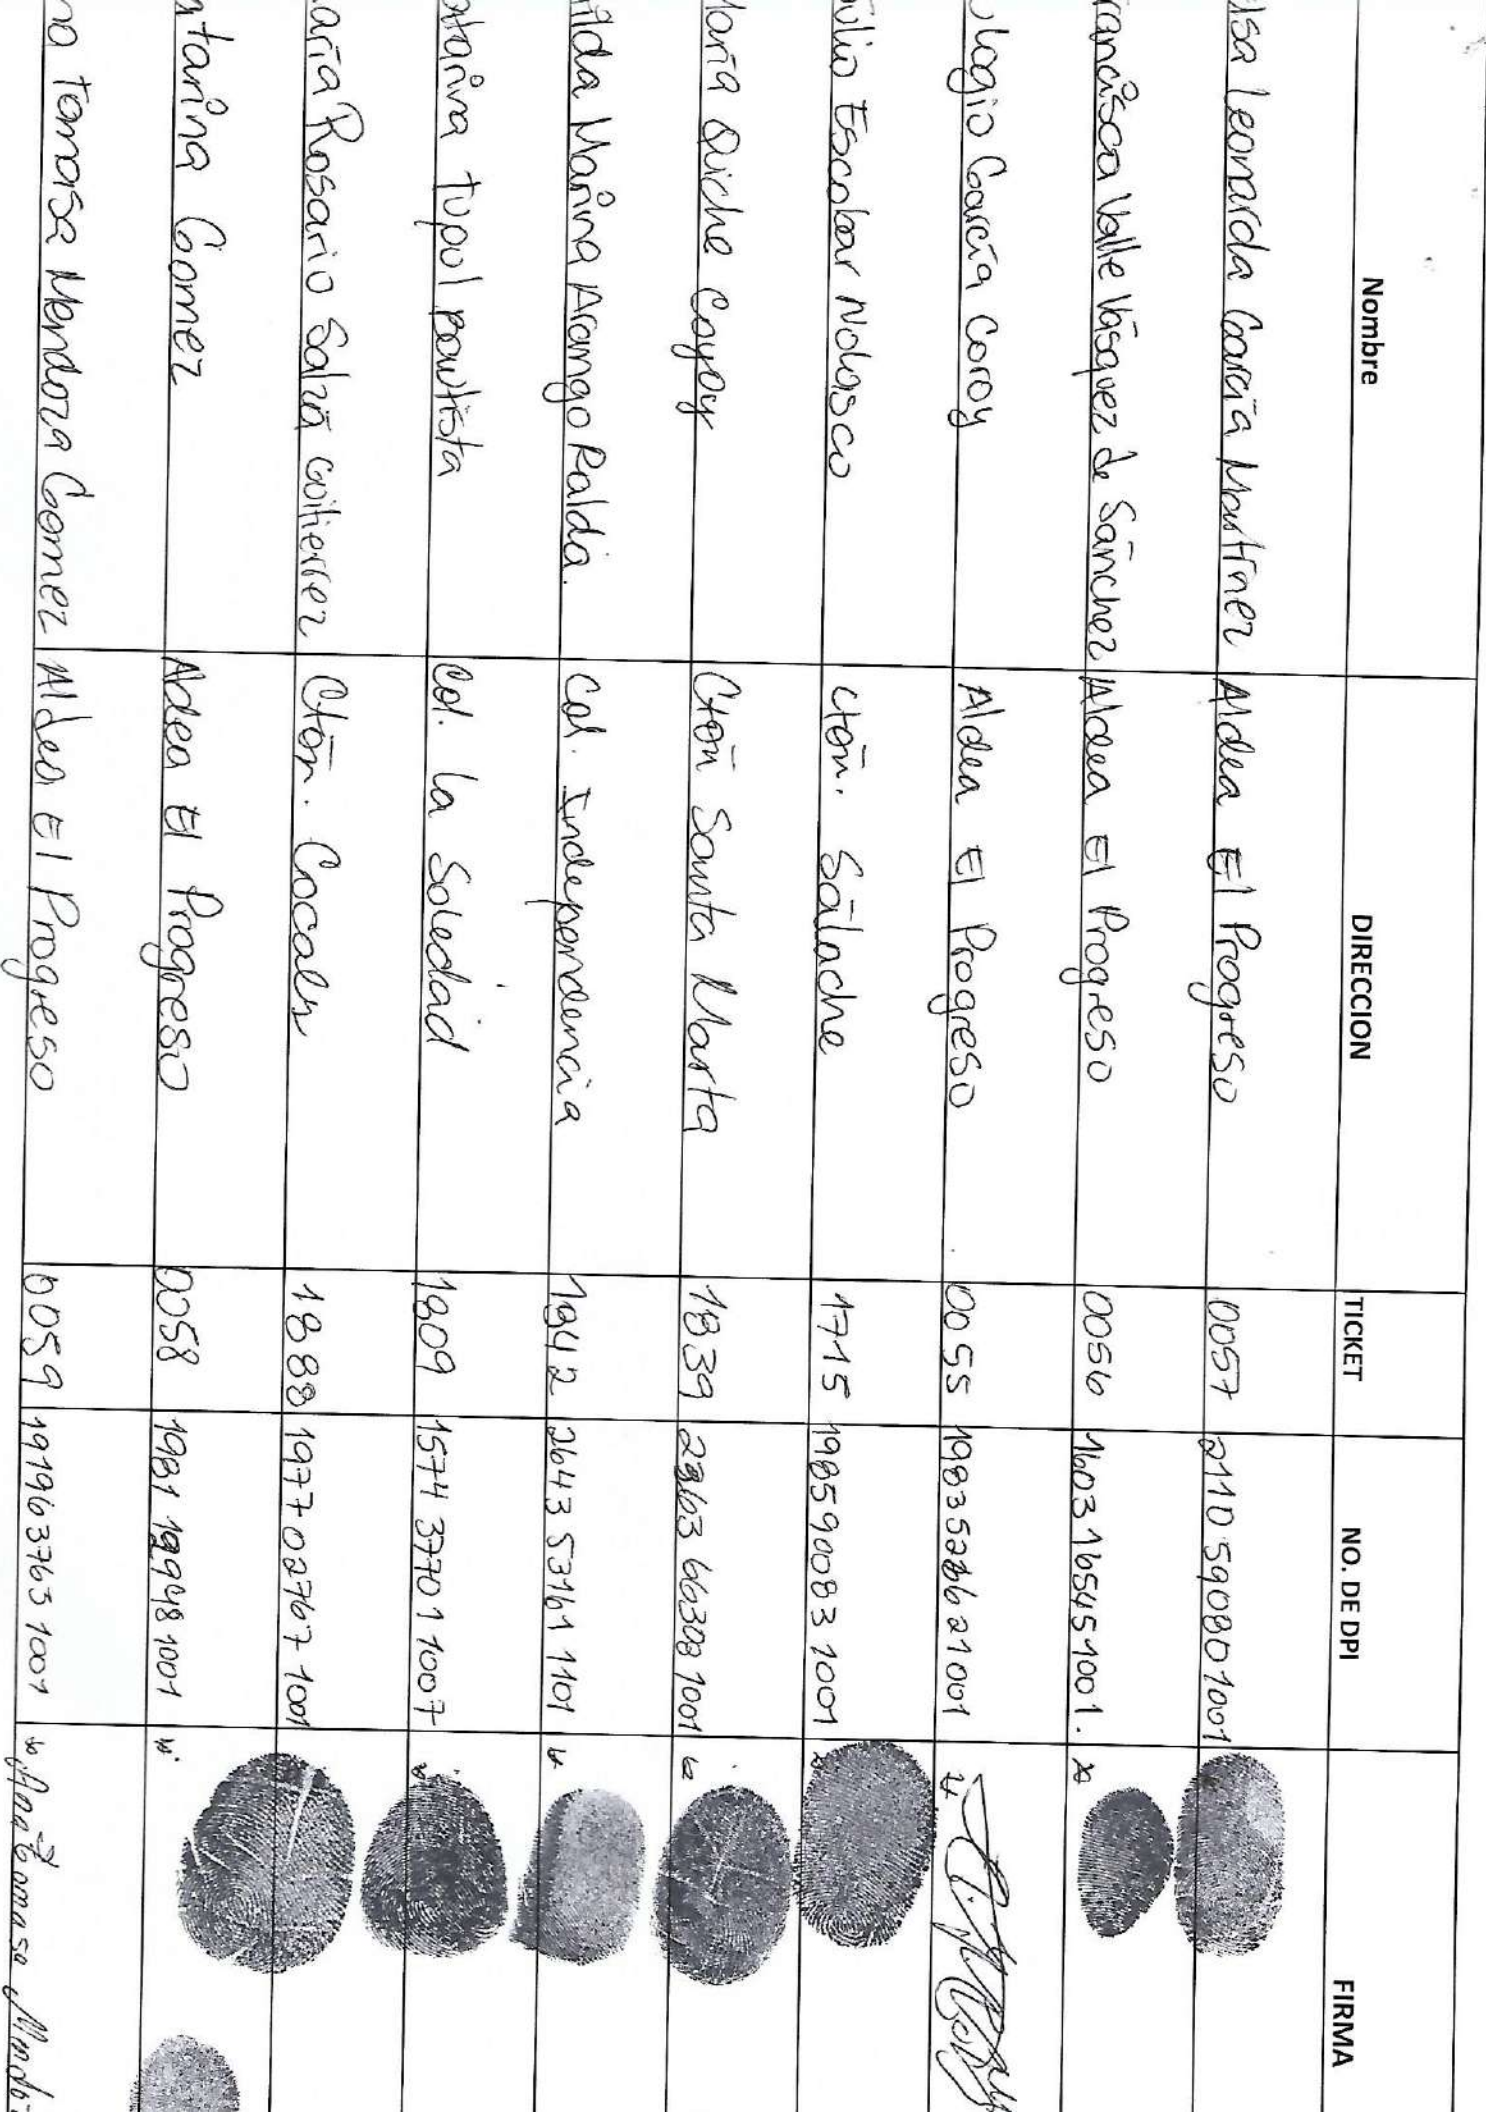 Nombre DIRECCION TICKET NO. DE DPI FIRMA
lsa Leonarda García Martínez Aldea El Progreso 0057 2110 59080 1001
rancisca Valle Vásquez de Sánchez Aldea El Progreso 0056 1603 16545 1001.
ulogio García Coroy Aldea El Progreso 0055 1983 52662 1001
ulio Escobar Nolasco Ctón. Sálache 1715 1985 90083 1001
María Quiche Coyoy Ctón Santa Marta 1839 2363 66308 1001
ilda Marina Arango Ralda. Col. Independencia 1842 2643 53161 1101
atarina tupul Bautista Col. la Soledad 1809 1574 37701 1007
aría Rosario Salzá Gutierrez Ctón. Cocales 1888 1977 02767 1001
atarina Gómez Aldea El Progreso 0058 1981 1001
na Tomasa Mendoza Gómez Aldea El Progreso 0059 1919 63763 1001 Ana Tomasa Mendo